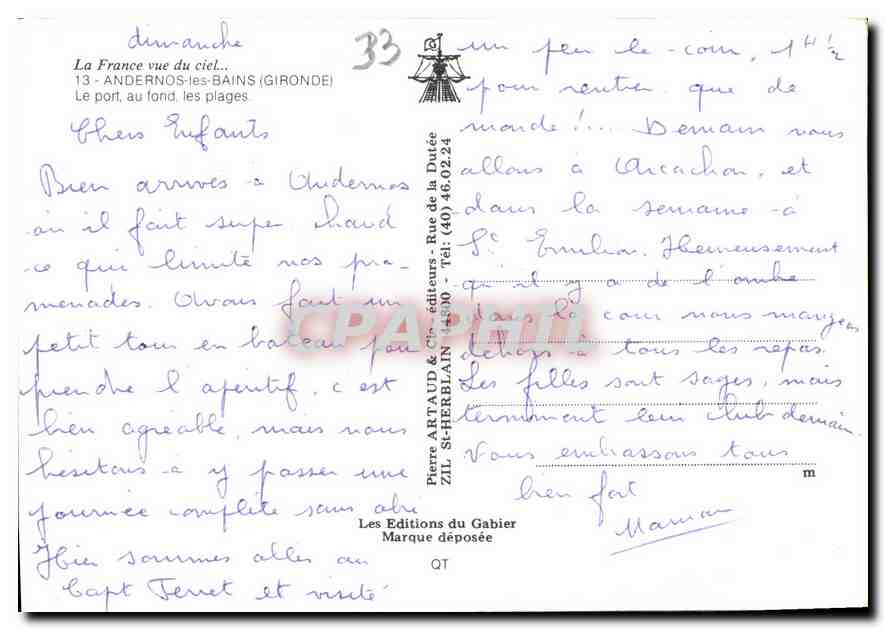 dimanche
33
La France vue du ciel...
13 - ANDERNOS-les-BAINS (GIRONDE)
Le port, au fond, les plages.
Chers Enfants
Bien arrivés à Andernos
où il fait super chaud
ce qui limite nos pro-
menades. Avons fait un
petit tour en bateau pour
prendre l'apéritif, c'est
bien agréable, mais nous
hésitons à y passer une
journée complète sans abri
Hier sommes allés au
Capt Ferret et visité
un peu le coin, 1H 1/2
pour rentrer que de
monde !... Demain nous
allons à Arcachon, et
dans la semaine à
St Emilion. Heureusement
qu'il y a de l'ombre
dans la cour nous mangeons
dehors à tous les repas.
Les filles sont sages, mais
terminent leur club demain.
Vous embrassons tous
bien fort
Maman
Pierre ARTAUD & Cie - éditeurs - Rue de la Dutée
ZIL St-HERBLAIN 44800 - Tél: (40) 46.02.24
Les Editions du Gabier
Marque déposée
QT
m
CPAPHIL